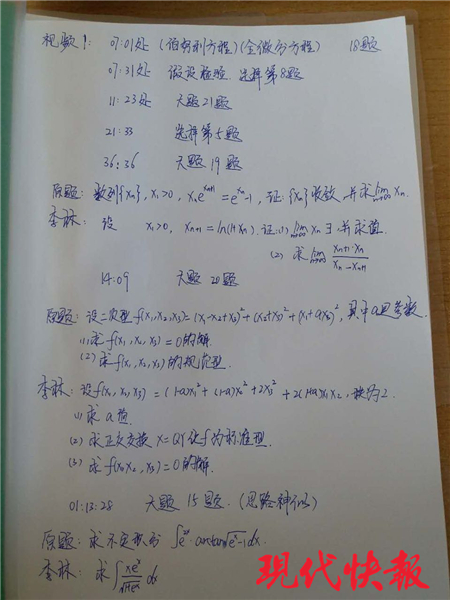 视频1: 07:01处 (伯努利方程)(全微分方程) 18题
07:31处 假设检验 选择第8题
11:23处 大题21题
21:33 选择第5题
36:36 大题19题
原题: 数列{xn}, x1>0, xne^xn+1=e^xn-1, 证:{xn}收敛 并求lim n→∞ xn.
李林: 设 x1>0, xn+1=ln(1+xn) 证:(1) lim n→∞ xn ∃,并求值.
(2) 求 lim n→∞ xn+1·xn/xn-xn+1
14:09 大题20题
原题: 设二次型 f(x1,x2,x3)=(x1-x2+x3)²+(x2+x3)²+(x1+ax3)², 其中a是参数.
(1)求f(x1,x2,x3)=0的解.
(2)求f(x1,x2,x3)的规范型.
李林: 设f(x1,x2,x3)=(1-a)x1²+(1-a)x2²+2x3²+2(1+a)x1x2, 秩为2.
(1) 求a值
(2) 求正交变换 x=QY化f为标准型.
(3) 求f(x1,x2,x3)=0的解.
01:13:28 大题15题.(思路神似)
原题: 求不定积分 ∫e^2x·arctan√e^x-1 dx.
李林: 求∫xe^x/√1+e^x dx
现代快報